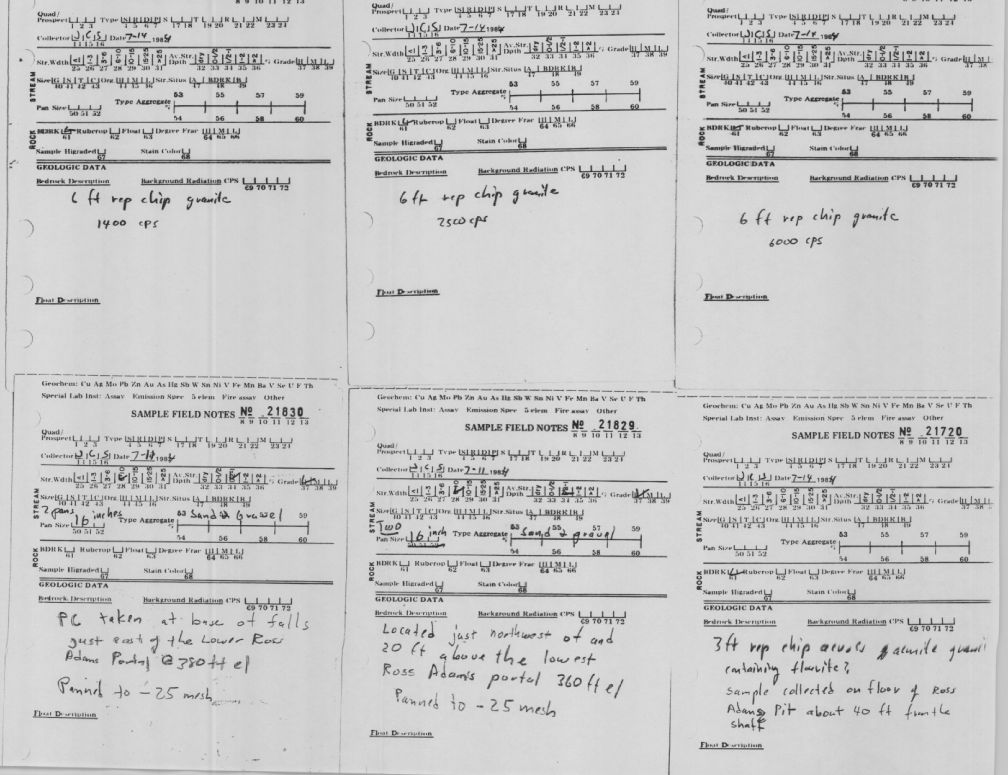 8 9 10 11 12 13
Quad/
Prospect Type S I R I D I P S T L R L M
1 2 3 4 5 6 7 17 18 19 20 21 22 23 24
Collector J C S Date 7-14 1984
14 15 16
Str.Wdth <1 1-3 3-6 6-10 10-15 15-25 >25 Av.Str. Dpth Grade H M L
25 26 27 28 29 30 31 32 33 34 35 36 37 38 39
Size G S T C Org H M L Str.Situs A BDRK R
40 41 42 43 44 45 46 47 48 49
STREAM
53 55 57 59
Type Aggregate %
Pan Size
50 51 52 54 56 58 60
ROCK
BDRK Rubcrop Float Degree Frac H M L
61 62 63 64 65 66
Sample Higraded Stain Color
67 68
GEOLOGIC DATA
Bedrock Description Background Radiation CPS
69 70 71 72
6 ft rep chip granite
1400 cps
Float Description
Quad/
Prospect Type S I R I D I P S T L R L M
1 2 3 4 5 6 7 17 18 19 20 21 22 23 24
Collector J C S Date 7-14 1984
14 15 16
Str.Wdth <1 1-3 3-6 6-10 10-15 15-25 >25 Av.Str. Dpth Grade H M L
25 26 27 28 29 30 31 32 33 34 35 36 37 38 39
Size G S T C Org H M L Str.Situs A BDRK R
40 41 42 43 44 45 46 47 48 49
STREAM
53 55 57 59
Type Aggregate %
Pan Size
50 51 52 54 56 58 60
BDRK Rubcrop Float Degree Frac H M L
61 62 63 64 65 66
ROCK
Sample Higraded Stain Color
67 68
GEOLOGIC DATA
Bedrock Description Background Radiation CPS
69 70 71 72
6 ft rep chip granite
2500 cps
Float Description
8 9 10 11 12 13
Quad/
Prospect Type S I R I D I P S T L R L M
1 2 3 4 5 6 7 17 18 19 20 21 22 23 24
Collector J C S Date 7-14 1984
14 15 16
Str.Wdth <1 1-3 3-6 6-10 10-15 15-25 >25 Av.Str. Dpth Grade H M L
25 26 27 28 29 30 31 32 33 34 35 36 37 38
Size G S T C Org H M L Str.Situs A BDRK R
40 41 42 43 44 45 46 47 48 49
STREAM
53 55 57 59
Type Aggregate %
Pan Size
50 51 52 54 56 58 60
BDRK Rubcrop Float Degree Frac H M L
61 62 63 64 65 66
ROCK
Sample Higraded Stain Color
67 68
GEOLOGIC DATA
Bedrock Description Background Radiation CPS
69 70 71 72
6 ft rep chip granite
6000 cps
Float Description
Geochem: Cu Ag Mo Pb Zn Au As Hg Sb W Sn Ni V Fe Mn Ba V Se U F Th
Special Lab Inst: Assay Emission Spec 5 elem Fire assay Other
SAMPLE FIELD NOTES Nº 21830
8 9 10 11 12 13
Quad/
Prospect Type S I R I D I P S T L R L M
1 2 3 4 5 6 7 17 18 19 20 21 22 23 24
Collector J C S Date 7-11 1984
14 15 16
Str.Wdth <1 1-3 3-6 6-10 10-15 15-25 >25 Av.Str. Dpth Grade H M L
25 26 27 28 29 30 31 32 33 34 35 36 37 38 39
Size G S T C Org H M L Str.Situs A BDRK R
40 41 42 43 44 45 46 47 48 49
STREAM
2 pans
53 Sand & Gravel 59
Pan Size 16 inches Type Aggregate %
50 51 52 54 56 58 60
ROCK
BDRK Rubcrop Float Degree Frac H M L
61 62 63 64 65 66
Sample Higraded Stain Color
67 68
GEOLOGIC DATA
Bedrock Description Background Radiation CPS
69 70 71 72
PC taken at base of falls
just east of the Lower Ross
Adams Portal @ 380 ft el
Panned to -25 mesh
Float Description
Geochem: Cu Ag Mo Pb Zn Au As Hg Sb W Sn Ni V Fe Mn Ba V Se U F Th
Special Lab Inst: Assay Emission Spec 5 elem Fire assay Other
SAMPLE FIELD NOTES Nº 21829
8 9 10 11 12 13
Quad/
Prospect Type S I R I D I P S T L R L M
1 2 3 4 5 6 7 17 18 19 20 21 22 23 24
Collector J C S Date 7-11 1984
14 15 16
Str.Wdth <1 1-3 3-6 6-10 10-15 15-25 >25 Av.Str. Dpth Grade H M L
25 26 27 28 29 30 31 32 33 34 35 36 37 38 39
Size G S T C Org H M L Str.Situs A BDRK R
40 41 42 43 44 45 46 47 48 49
STREAM
TWO
53 55 57 59
Pan Size 16 inch Type Aggregate % Sand & gravel
50 51 52 54 56 58 60
ROCK
BDRK Rubcrop Float Degree Frac H M L
61 62 63 64 65 66
Sample Higraded Stain Color
67 68
GEOLOGIC DATA
Bedrock Description Background Radiation CPS
69 70 71 72
Located just northwest of and
20 ft above the lowest
Ross Adams portal 360 ft el
Panned to -25 mesh
Float Description
Geochem: Cu Ag Mo Pb Zn Au As Hg Sb W Sn Ni V Fe Mn Ba V Se U F Th
Special Lab Inst: Assay Emission Spec 5 elem Fire assay Other
SAMPLE FIELD NOTES Nº 21720
8 9 10 11 12 13
Quad/
Prospect Type S I R I D I P S T L R L M
1 2 3 4 5 6 7 17 18 19 20 21 22 23 24
Collector Date 7-14 1984
14 15 16
Str.Wdth <1 1-3 3-6 6-10 10-15 15-25 >25 Av.Str. Dpth Grade H M L
25 26 27 28 29 30 31 32 33 34 35 36 37 38 39
Size G S T C Org H M L Str.Situs A BDRK R
40 41 42 43 44 45 46 47 48 49
STREAM
53 55 57 59
Type Aggregate %
Pan Size
50 51 52 54 56 58 60
ROCK
BDRK Rubcrop Float Degree Frac H M L
61 62 63 64 65 66
Sample Higraded Stain Color
67 68
GEOLOGIC DATA
Bedrock Description Background Radiation CPS
69 70 71 72
3 ft rep chip across granite
containing flourite?
Sample collected on floor of Ross
Adams Pit about 40 ft from the
shaft
Float Description